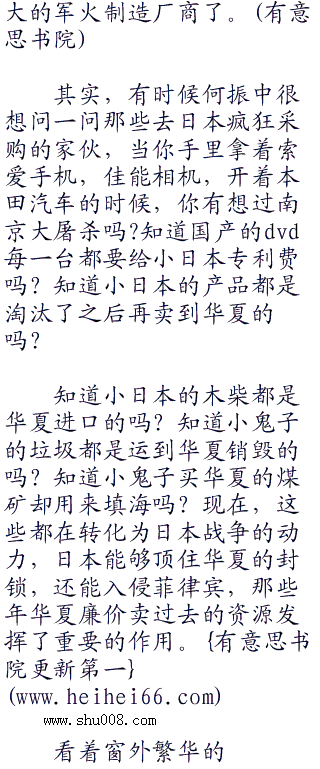 大的军火制造厂商了。(有意
思书院)
其实，有时候何振中很
想问一问那些去日本疯狂采
购的家伙，当你手里拿着索
爱手机，佳能相机，开着本
田汽车的时候，你有想过南
京大屠杀吗?知道国产的dvd
每一台都要给小日本专利费
吗？知道小日本的产品都是
淘汰了之后再卖到华夏的
吗？
知道小日本的木柴都是
华夏进口的吗？知道小鬼子
的垃圾都是运到华夏销毁的
吗？知道小鬼子买华夏的煤
矿却用来填海吗？现在，这
些都在转化为日本战争的动
力，日本能够顶住华夏的封
锁，还能入侵菲律宾，那些
年华夏廉价卖过去的资源发
挥了重要的作用。{有意思书
院更新第一}
(www.heihei66.com)
www.shu008.com
看着窗外繁华的